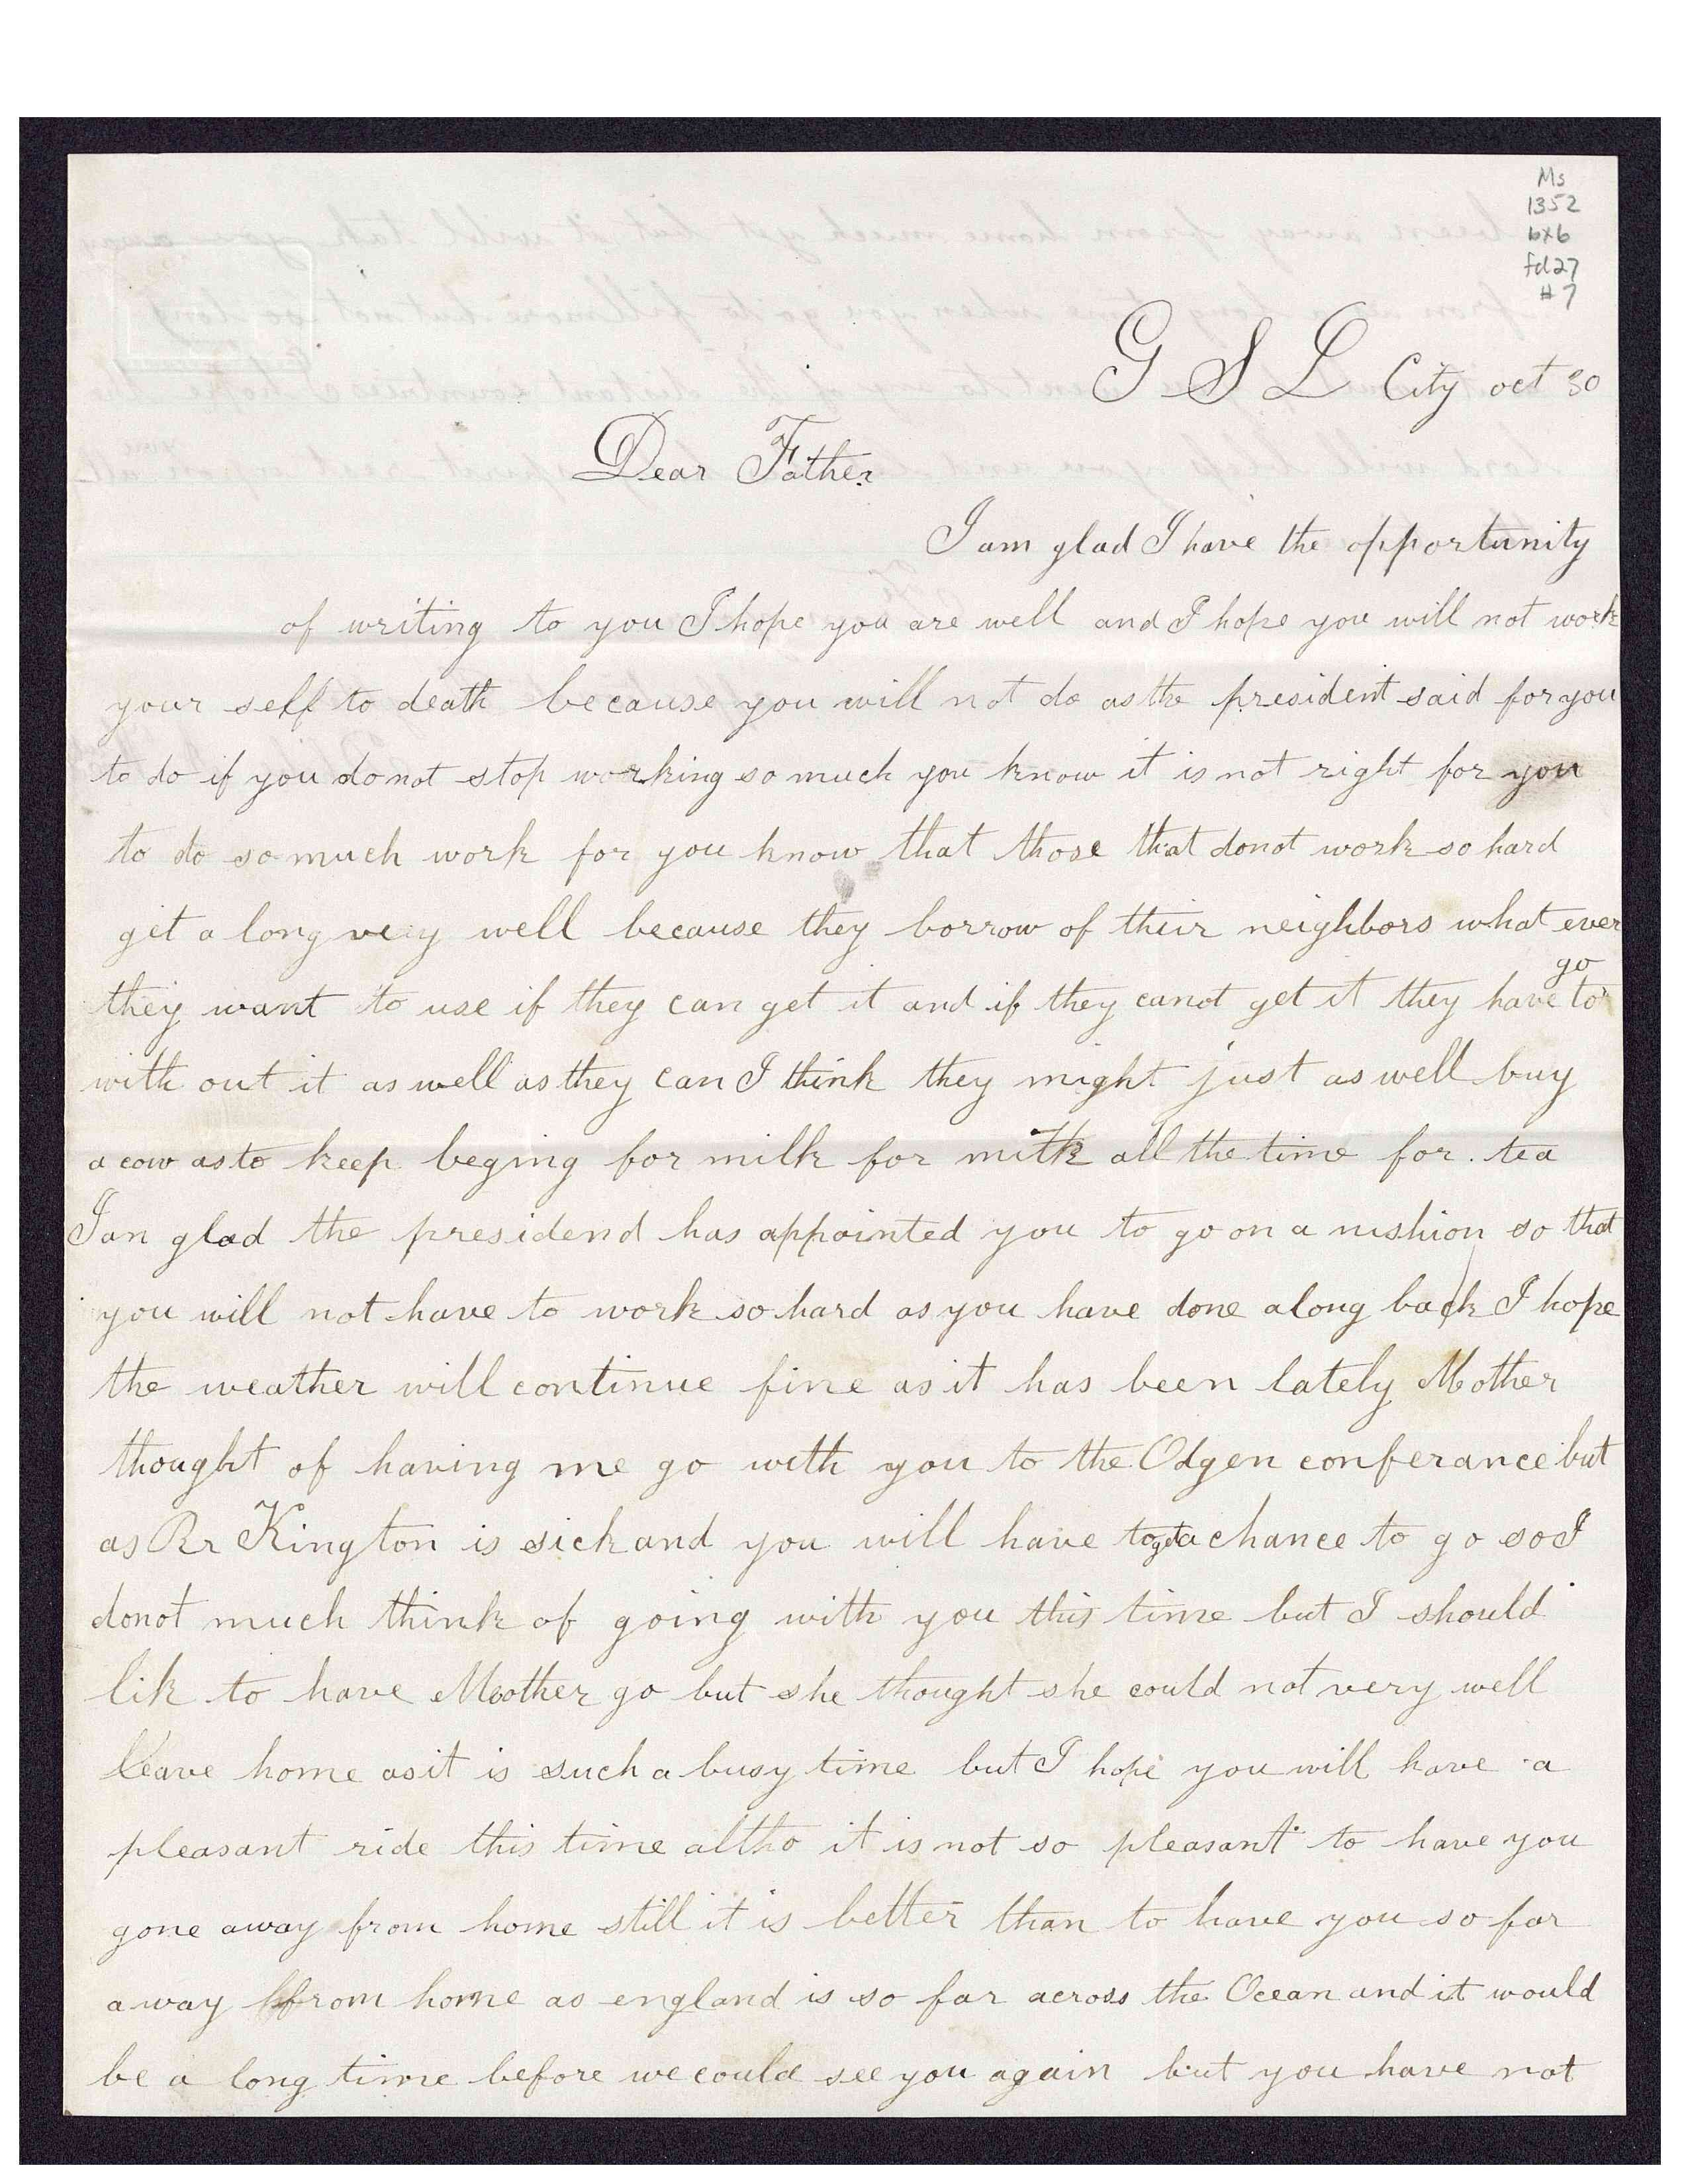 Ms
1352
bx6
fd27
#7
G S L City oct 30
Dear Father
I am glad I have the opportunity
of writing to you I hope you are well and I hope you will not work
your self to death because you will not do as the president said for you
to do if you do not stop working so much you know it is not right for you
to do so much work for you know that those that donot work so hard
get a long very well because they borrow of their neighbors what ever
go
they want to use if they can get it and if they canot get it they have to
with out it as well as they can I think they might just as well buy
a cow as to keep beging for milk for milk all the time for tea
I an glad the presidend has appointed you to go on a mishion so that
you will not have to work so hard as you have done along back I hope
the weather will continue fine as it has been lately Mother
thought of having me go with you to the Odgen conferance but
as Br Kington is sick and you will have to get a chance to go so I
donot much think of going with you this time but I should
lik to have Mother go but she thought she could not very well
leave home as it is such a busy time but I hope you will have a
pleasant ride this time altho it is not so pleasant to have you
gone away from home still it is better than to have you so far
away from home as england is so far across the Ocean and it would
be a long time before we could see you again but you have not